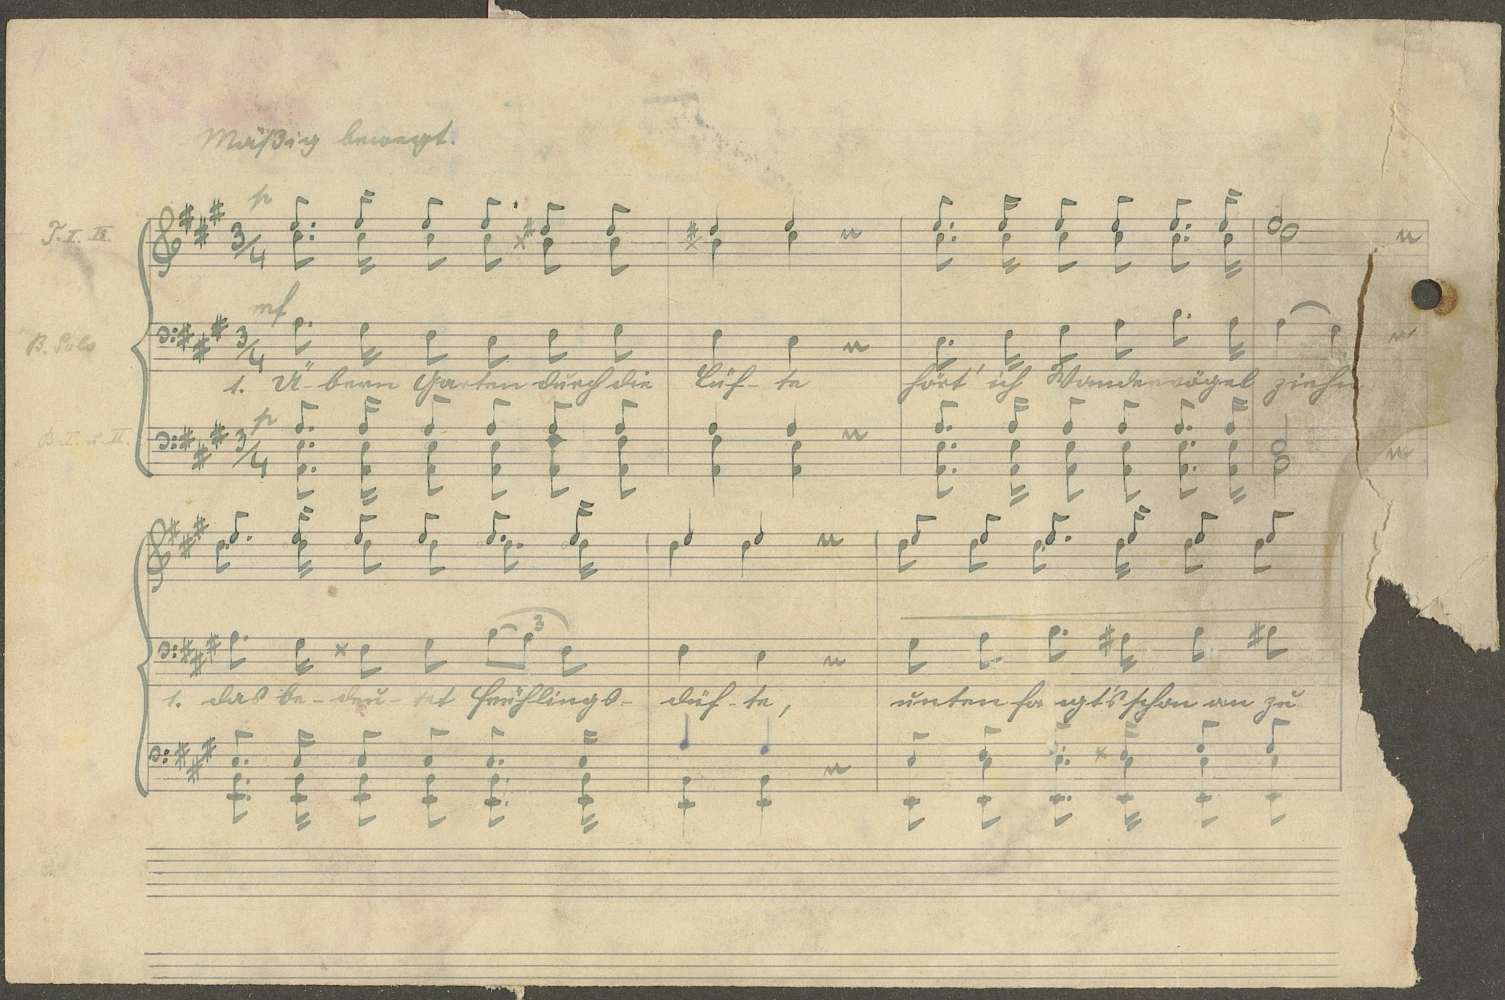 Mäßig bewegt.
T. I. II.
p
3/4
B. Solo
mf
3/4
1. Ü-bern Garten durch die Lüf-te hört' ich Wandervögel ziehn
B. I. u. II.
p
3/4
3
1. das be-deu-tet Frühlings-düf-te, unten fa ngt's schon an zu